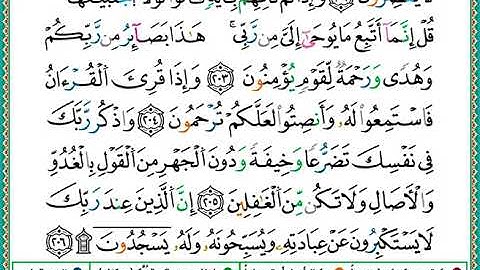 وَإِذَا لَمْ تَأْتِهِم
قُلْ إِنَّمَآ أَتَّبِعُ مَا يُوحَىٰٓ إِلَىَّ مِن رَّبِّى ۚ هَـٰذَا بَصَآئِرُ مِن رَّبِّكُمْ
وَهُدًى وَرَحْمَةٌ لِّقَوْمٍ يُؤْمِنُونَ ﴿٢٠٣﴾ وَإِذَا قُرِئَ ٱلْقُرْءَانُ
فَٱسْتَمِعُوا۟ لَهُۥ وَأَنصِتُوا۟ لَعَلَّكُمْ تُرْحَمُونَ ﴿٢٠٤﴾ وَٱذْكُر رَّبَّكَ
فِى نَفْسِكَ تَضَرُّعًا وَخِيفَةً وَدُونَ ٱلْجَهْرِ مِنَ ٱلْقَوْلِ بِٱلْغُدُوِّ
وَٱلْـَٔاصَالِ وَلَا تَكُن مِّنَ ٱلْغَـٰفِلِينَ ﴿٢٠٥﴾ إِنَّ ٱلَّذِينَ عِندَ رَبِّكَ
لَا يَسْتَكْبِرُونَ عَنْ عِبَادَتِهِۦ وَيُسَبِّحُونَهُۥ وَلَهُۥ يَسْجُدُونَ ۩ ﴿٢٠٦﴾